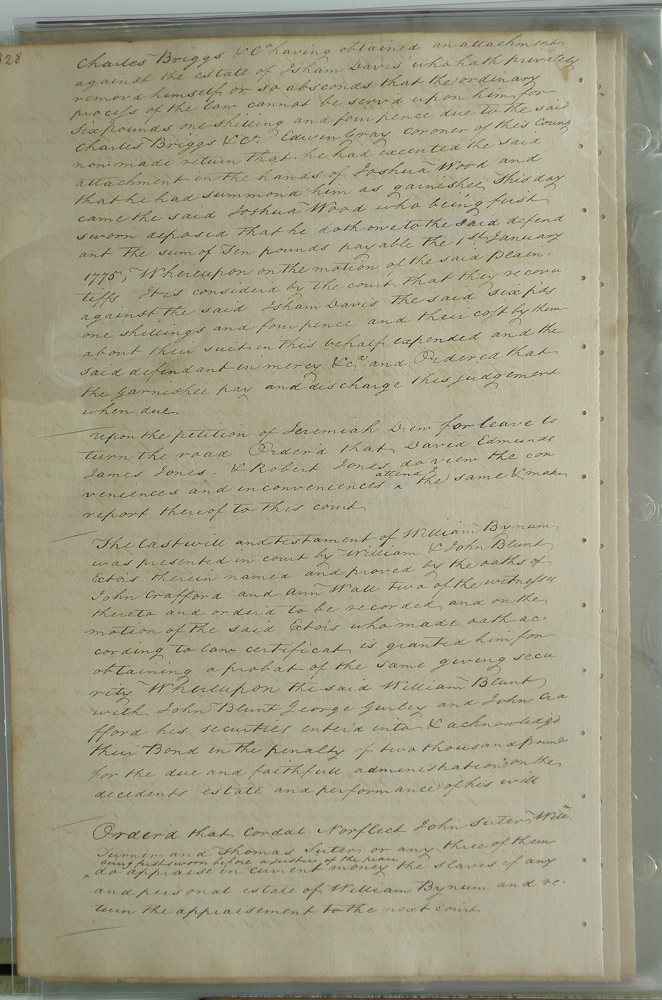 328
Charles Briggs &Co having obtained an attachment
against the estate of Isham Davis who hath privately
remov'd himself or so absconds that the ordinary
process of the law cannot be serv'd upon him for
Six pounds one shilling and four pence due to the said
Charles Briggs &Co. Edwin Gray coroner of this County
now made return that he had executed the said
attachment in the hands of Joshua Wood and
that he had summond him as garnishee This day
came the said Joshua Wood who being first
sworn deposed that he doth owe to the said defend
ant the sum of Ten pounds payable the 1st January
1775, Whereupon on the motion of the said Plain-
tiffs It is considerd by the court that they recover
against the said Isham Davis the said six pds
one shillings and four pence and their cost by them
about their suit in this behalf expended and the
said defendant in mercy &c.a and Ordered that
the Garnishee pay and discharge this judgement
when due.
Upon the petition of Jeremiah Drew for leave to
turn the road Order'd that David Edmunds
James Jones. & Robert Jones do view the con
veniences and inconveniences ^ attend.g the same & make
report thereof to this court
The last will and testament of William Bynum
was presented in court by William & John Blunt
Extors therein named and proved by the oaths of
John Crafford and Ann Wall two of the witnesses
thereto and order'd to be recorded and on the
motion of the said Extors who made oath ac-
cording to law certificat is granted him for
obtaining a probat of the same giving secu
rity Whereupon the said William Blunt
with John Blunt George Gurley and John Cra
fford his securities enter'd into & acknowledgd
their Bond in the penalty of two thousand pound
for the due and faithfull administration on the
decedents estate and performance of his will
Order'd that Cordal Norfleet John Suter Willm
Turner and Thomas Suter or any three of them
being first sworn before a justice of the peace
^ do appraise in current money the slaves if any
and personal estate of William Bynum and re-
turn the appraisement to the next court